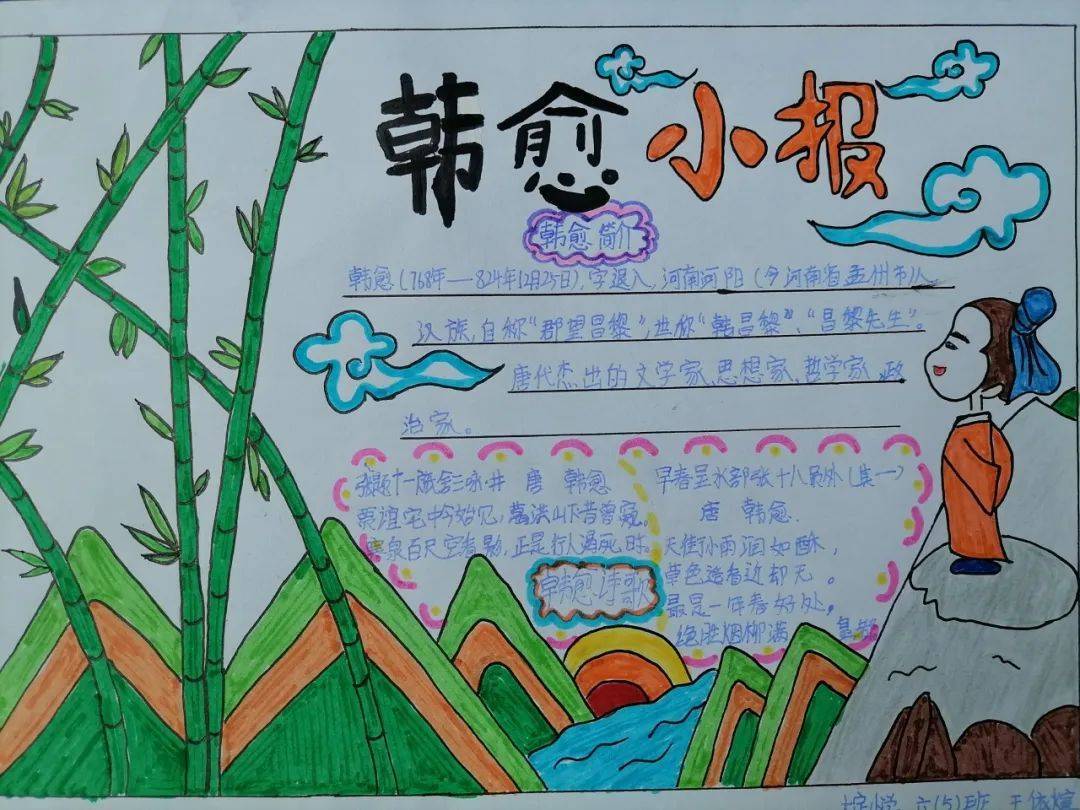 韩愈小报
韩愈简介
韩愈(768年—824年12月25日),字退入,河南河阳(今河南省孟州市)人
汉族,自称“郡望昌黎”,世称“韩昌黎”、“昌黎先生”。
唐代杰出的文学家、思想家、哲学家、政
治家。
张题十一旅舍三咏·井 唐 韩愈
贾谊宅中今始见,葛洪山下昔曾窥。
寒泉百尺空看影,正是行人渴死时。
韩愈诗歌
早春呈水部张十八员外(其一)
唐 韩愈.
天街小雨润如酥,
草色遥看近却无。
最是一年春好处,
绝胜烟柳满 皇都
六(5)班 王依煊